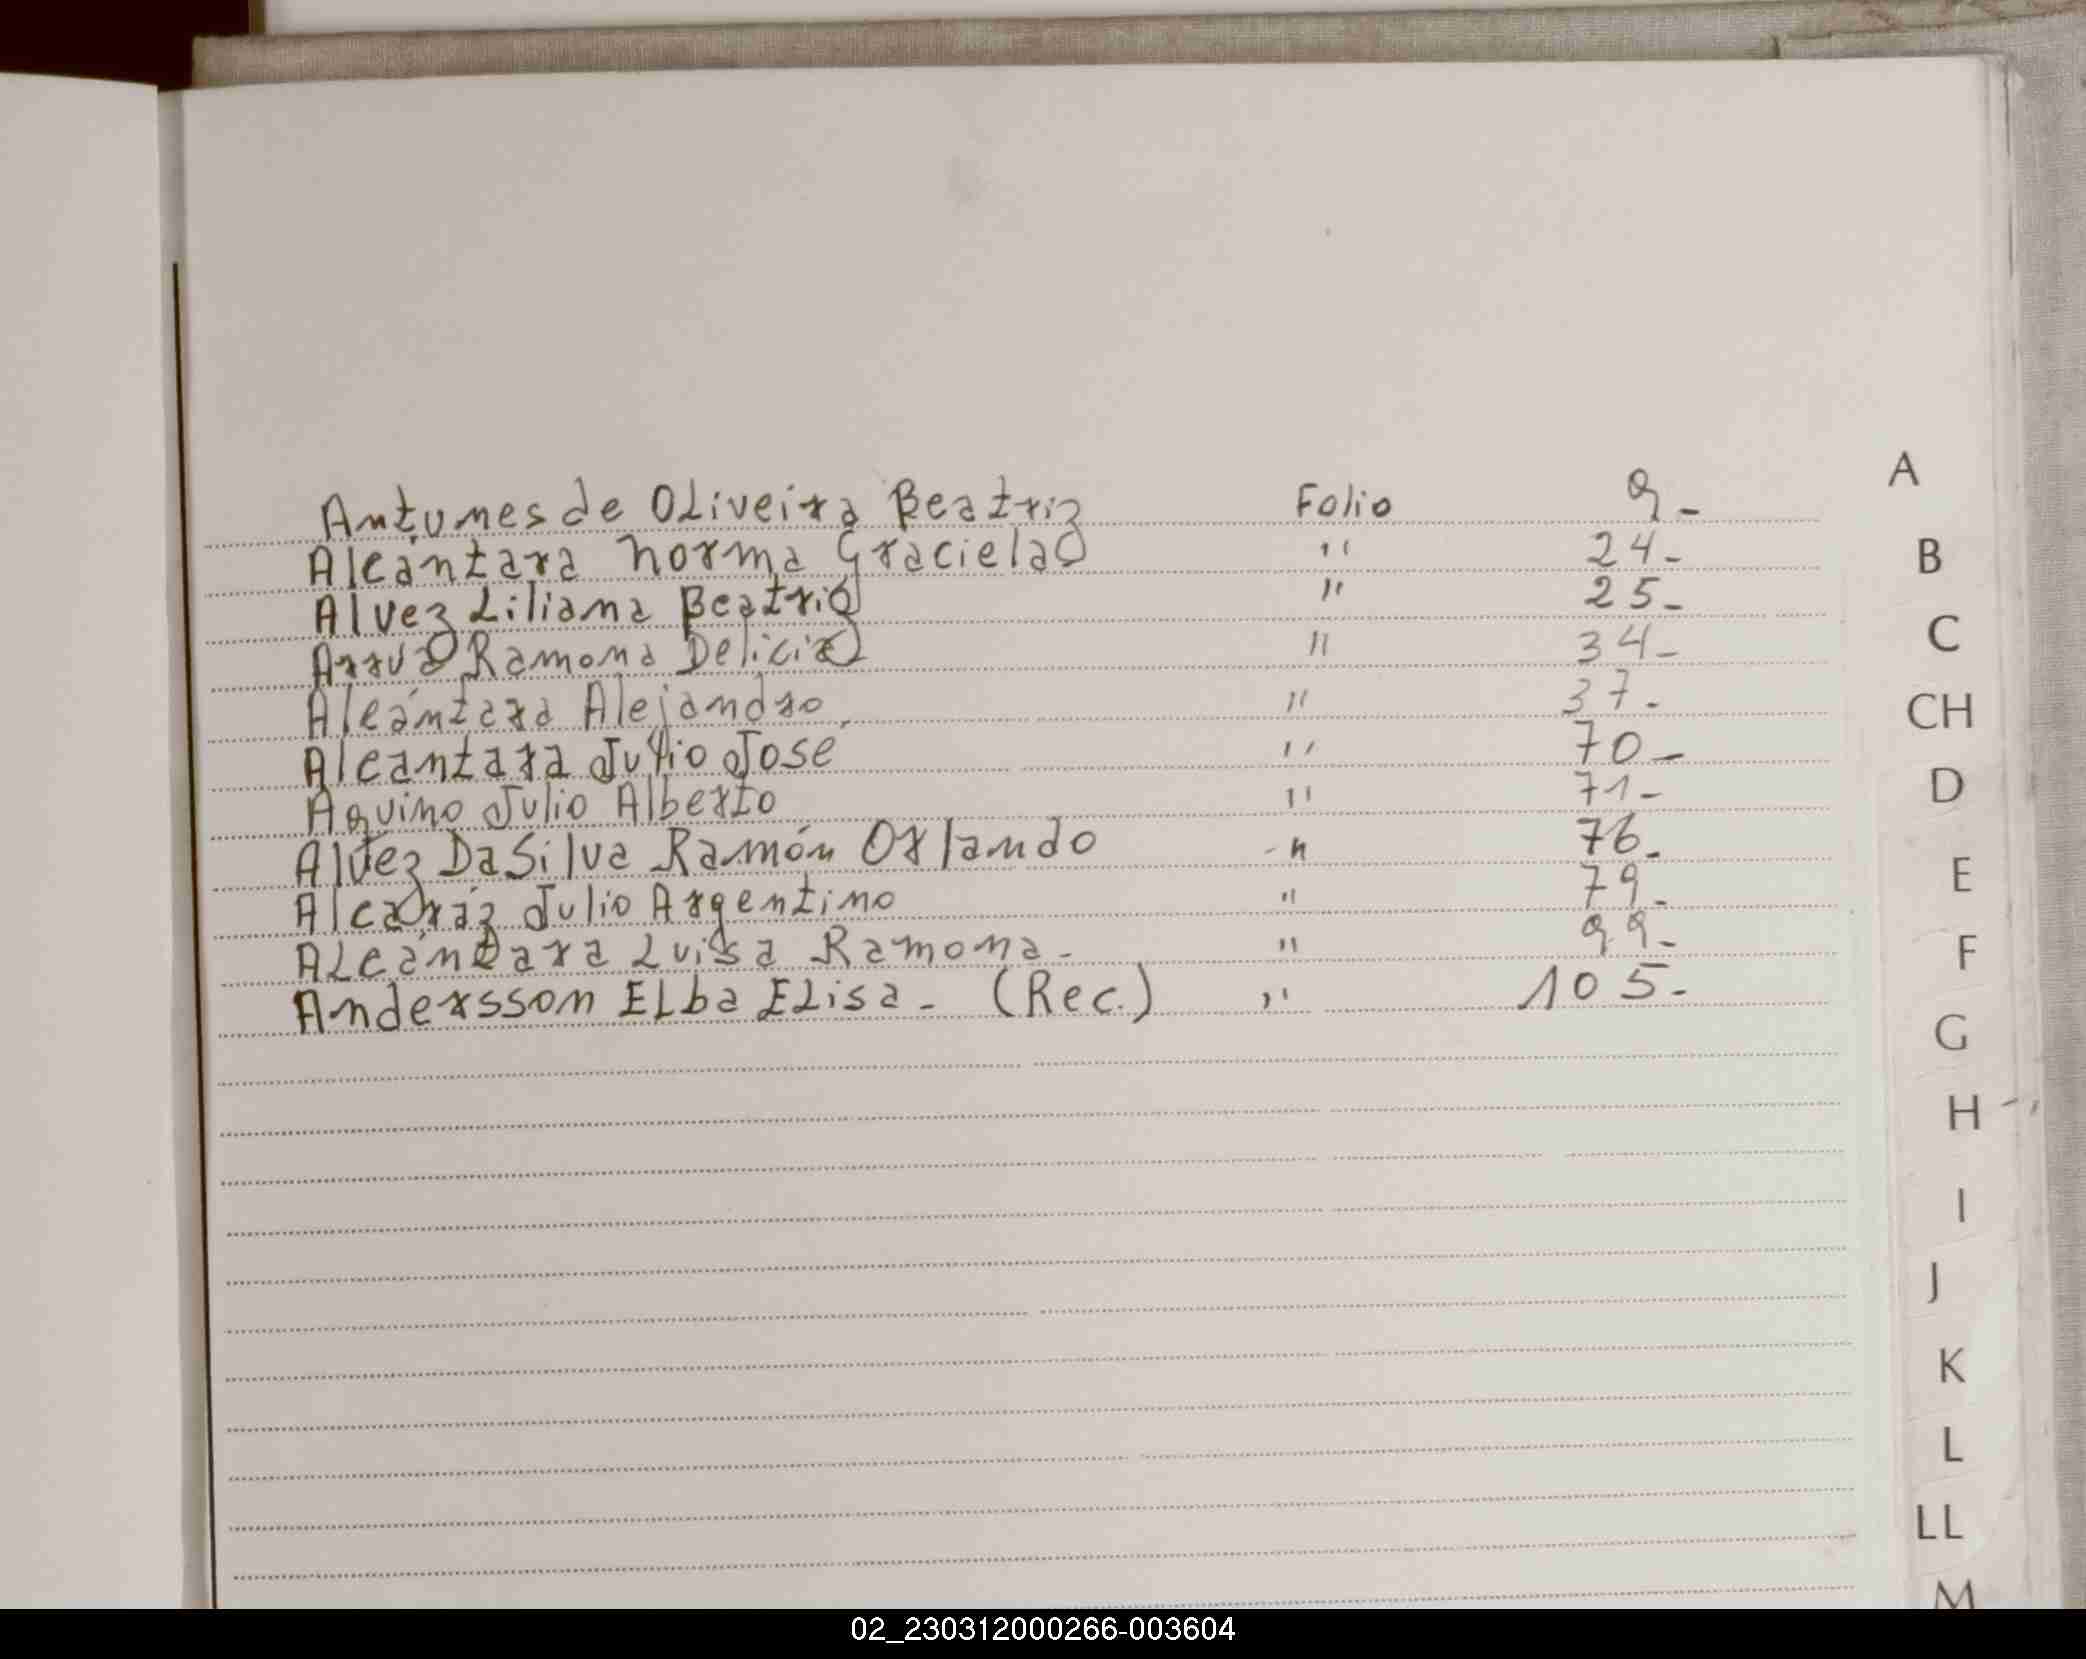 Antunes de Oliveira Beatriz Folio 9-
Alcántara Norma Graciela " 24-
Alvez Liliana Beatriz " 25-
Arrua Ramona Delicia " 34-
Alcántara Alejandro. " 37-
Alcantara Julio José " 70-
Aquino Julio Alberto " 71-
Alvez DaSilva Ramón Orlando " 76-
Alcaráz Julio Argentino " 79-
Alcántara Luisa Ramona- " 99-
Andersson Elba Elisa- (Rec.) " 105-
A
B
C
CH
D
E
F
G
H
I
J
K
L
LL
M
02_230312000266-003604